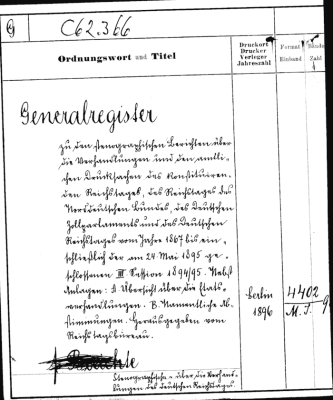 C62.366
Ordnungswort und Titel
Druckort
Drucker
Verleger
Jahreszahl
Format
Einband
Bände
Zahl
Generalregister
zu den stenographischen Berichten über
die Verhandlungen und den amtli-
chen Drucksachen des konstituiren-
den Reichstages, des Reichstages des
Norddeutschen Bundes, des Deutschen
Zollparlaments und des Deutschen
Reichstages vom Jahre 1867 bis ein-
schließlich der am 24. Mai 1895 ge-
schlossenen III. Session 1894/95. Nebst
Anlagen: A. Übersicht über die Etats-
verhandlungen. B. Namentliche Ab-
stimmungen. Herausgegeben vom
Reichstagsbüreau.
Berlin
1896
4402
M. J.
9
Stenographische über die Verhand-
lungen des deutschen Reichstages